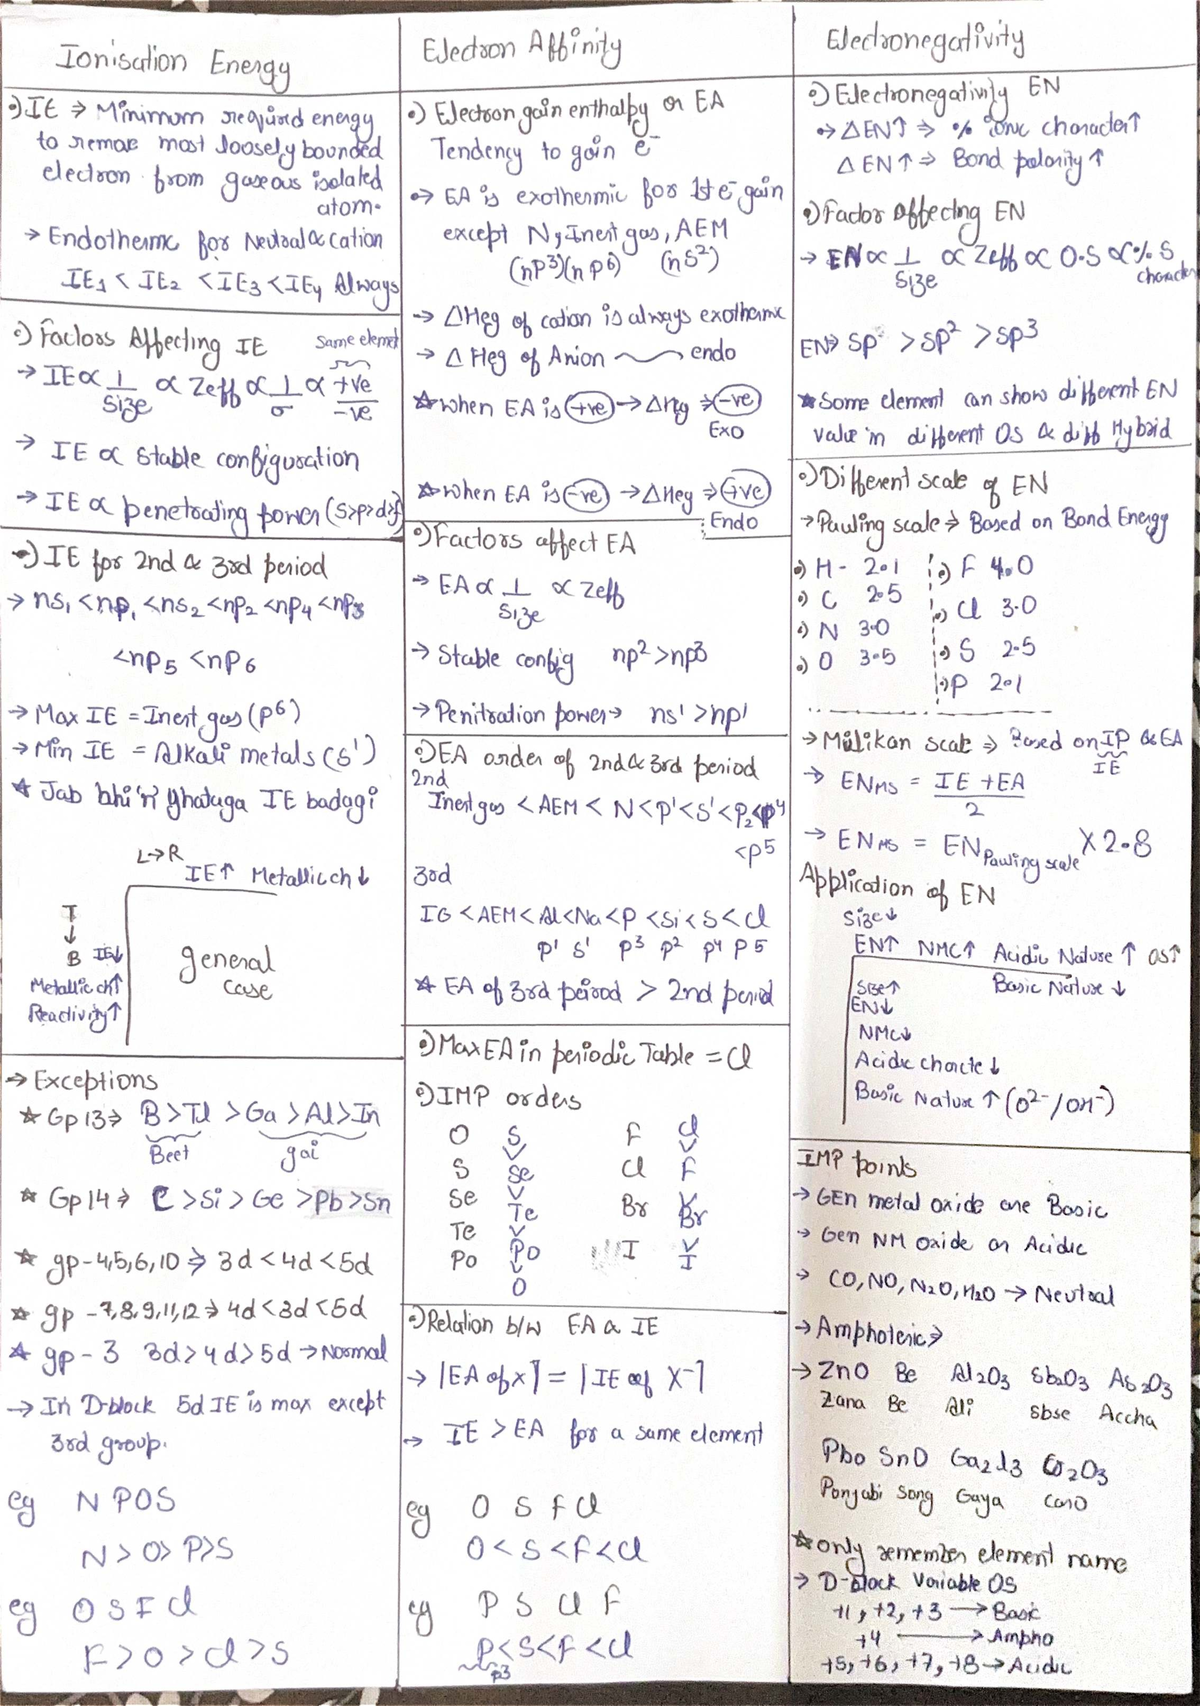 Ionisation Energy
IE ⇒ Minimum required energy
to remove most loosely bounded
electron from gaseous isolated
atom.
→ Endothermic for Neutral & cation
IE₁ < IE₂ < IE₃ < IE₄ Always
Factors Affecting IE
same element
→ IE ∝ 1/Size ∝ Zeff ∝ 1/σ ∝ +ve/-ve
→ IE ∝ stable configuration
→ IE ∝ penetrating power (s>p>d>f)
IE for 2nd & 3rd period
→ ns₁ < np₁ < ns₂ < np₂ < np₄ < np₃
< np₅ < np₆
→ Max IE = Inert gas (p⁶)
→ Min IE = Alkali metals (s¹)
★ Jab bhi 'n' ghatega IE badagi
L→R
IE↑ Metallic ch↓
T
↓
B IE↓
Metallic ch↑
Reactivity↑
general
case
→ Exceptions
★ Gp 13 ⇒ B > Tl > Ga > Al > In
Beet gai
★ Gp 14 ⇒ C > Si > Ge > Pb > Sn
★ gp - 4,5,6,10 ⇒ 3d < 4d < 5d
★ gp - 7,8,9,11,12 ⇒ 4d < 3d < 5d
★ gp - 3 3d > 4d > 5d → Normal
→ In D-block 5d IE is max except
3rd group.
eg N P O S
N > O > P > S
eg O S F Cl
F > O > Cl > S
Electron Affinity
Electron gain enthalpy or EA
Tendency to gain e⁻
→ EA is exothermic for 1st e⁻ gain
except N, Inert gas, AEM
(np³) (np⁶) (ns²)
→ ΔHeg of cation is always exothermic
→ ΔHeg of Anion ~~~ endo
★ when EA is +ve → ΔHeg ⇒ -ve
Exo
★ when EA is -ve → ΔHeg ⇒ +ve
Endo
Factors affect EA
→ EA ∝ 1/Size ∝ Zeff
→ Stable config np² > np³
→ Penitration power → ns¹ > np¹
EA order of 2nd & 3rd period
2nd
Inert gas < AEM < N < p¹ < s¹ < p₂ < p⁴
< p⁵
3rd
IG < AEM < Al < Na < P < Si < S < Cl
p¹ s¹ p³ p² p⁴ p5
★ EA of 3rd period > 2nd period
Max EA in periodic Table = Cl
IMP orders
O S F Cl
S Se Cl F
Se Te Br Br
Te Po I I
Po O
Relation b/w EA & IE
→ |EA of x| = |IE of X⁻|
→ IE > EA for a same element
eg O S F Cl
O < S < F < Cl
eg P S Cl F
P < S < F < Cl
p3
Electronegativity
Electronegativity EN
→ ΔEN↑ ⇒ % ionic character↑
ΔEN↑ ⇒ Bond polarity↑
Factor affecting EN
→ EN ∝ 1/Size ∝ Zeff ∝ O.S ∝ % S
character
EN ⇒ sp > sp² > sp³
★ Some element can show different EN
value in different OS & diff Hybrid
Different scale of EN
→ Pauling scale ⇒ Based on Bond Energy
H - 2.1 F 4.0
C 2.5 Cl 3.0
N 3.0 S 2.5
O 3.5 P 2.1
→ Mulikan scale ⇒ Based on IP & EA
IE
→ EN_MS = IE + EA / 2
→ EN_MS = EN_Pauling scale × 2.8
Application of EN
Size↓
EN↑ NMC↑ Acidic Nature↑ OS↑
Basic Nature↓
Size↑
EN↓
NMC↓
Acidic charcte↓
Basic Nature↑ (O²⁻/OH⁻)
IMP points
→ GEn metal oxide are Basic
→ Gen NM oxide are Acidic
→ CO, NO, N₂O, H₂O → Neutral
→ Ampholeric ⇒
→ ZnO Be Al₂O₃ Sb₂O₃ As₂O₃
Zana Be Ali sbse Accha
PbO SnO Ga₂I3 Cr₂O₃
Panjabi song Gaya caro
★ only remember element name
→ D-block Variable OS
+1, +2, +3 → Basic
+4 → Ampho
+5, +6, +7, +8 → Acidic